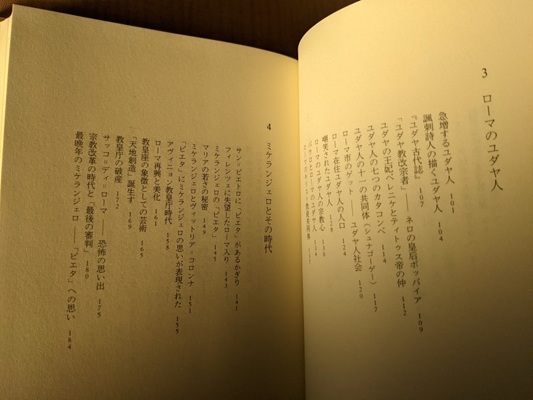 3 ローマのユダヤ人
急増するユダヤ人 101
諷刺詩人の描くユダヤ人 104
『ユダヤ古代誌』 107
「ユダヤ教改宗者」――ネロの皇后ポッパイア 109
ユダヤの王妃ベレニケとティトゥス帝の仲 112
ユダヤ人の七つのカタコンベ 114
ユダヤ人の十一の共同体（シュナゴーゲー） 117
ローマ市内のゲットー――ユダヤ人社会 120
ローマ在住ユダヤ人の人口
嘲笑されたユダヤ人
ローマのユダヤ人の宗教心
4 ミケランジェロとその時代
サン・ピエトロに「ピエタ」があるかぎり 141
フィレンツェに失望したローマ入り 143
ミケランジェロの「ピエタ」 145
マリアの若さの秘密 149
ミケランジェロとヴィットリア・コロンナ 151
「ピエタ」にミケランジェロの思いが表現された 155
アヴィニョン教皇庁時代 158
ローマ再興と美化 161
教皇座の象徴としての芸術 165
「天地創造」誕生す 169
教皇庁の破産 172
サッコ＝ディ＝ローマ――恐怖の思い出 175
宗教改革の時代と「最後の審判」 180
最晩年のミケランジェロ――「ピエタ」への思い 184